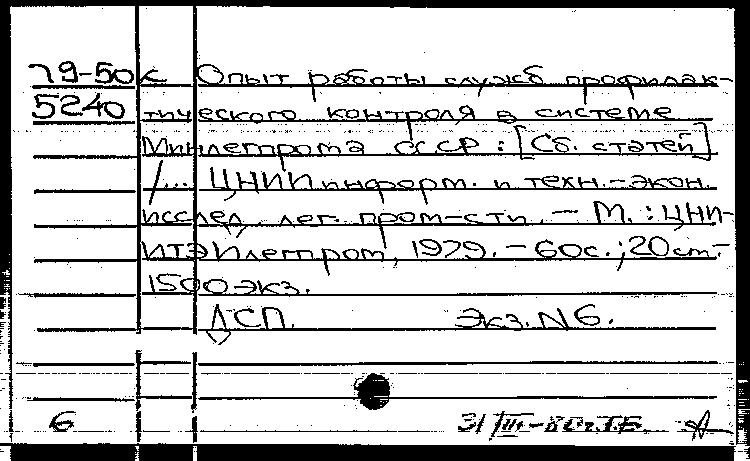 79-50к Опыт работы служб профилак-
5240 тического контроля в системе
Минлегпрома СССР : [Сб. статей]
/... ЦНИИ информ. и техн.-экон.
исслед. лег. пром-сти. - М. : ЦНИ-
ИТЭИлегпром, 1979. - 60с.; 20 см.-
1500 экз.
ДСП. Экз. N 6.
6 31/III-80г. Т.Б.